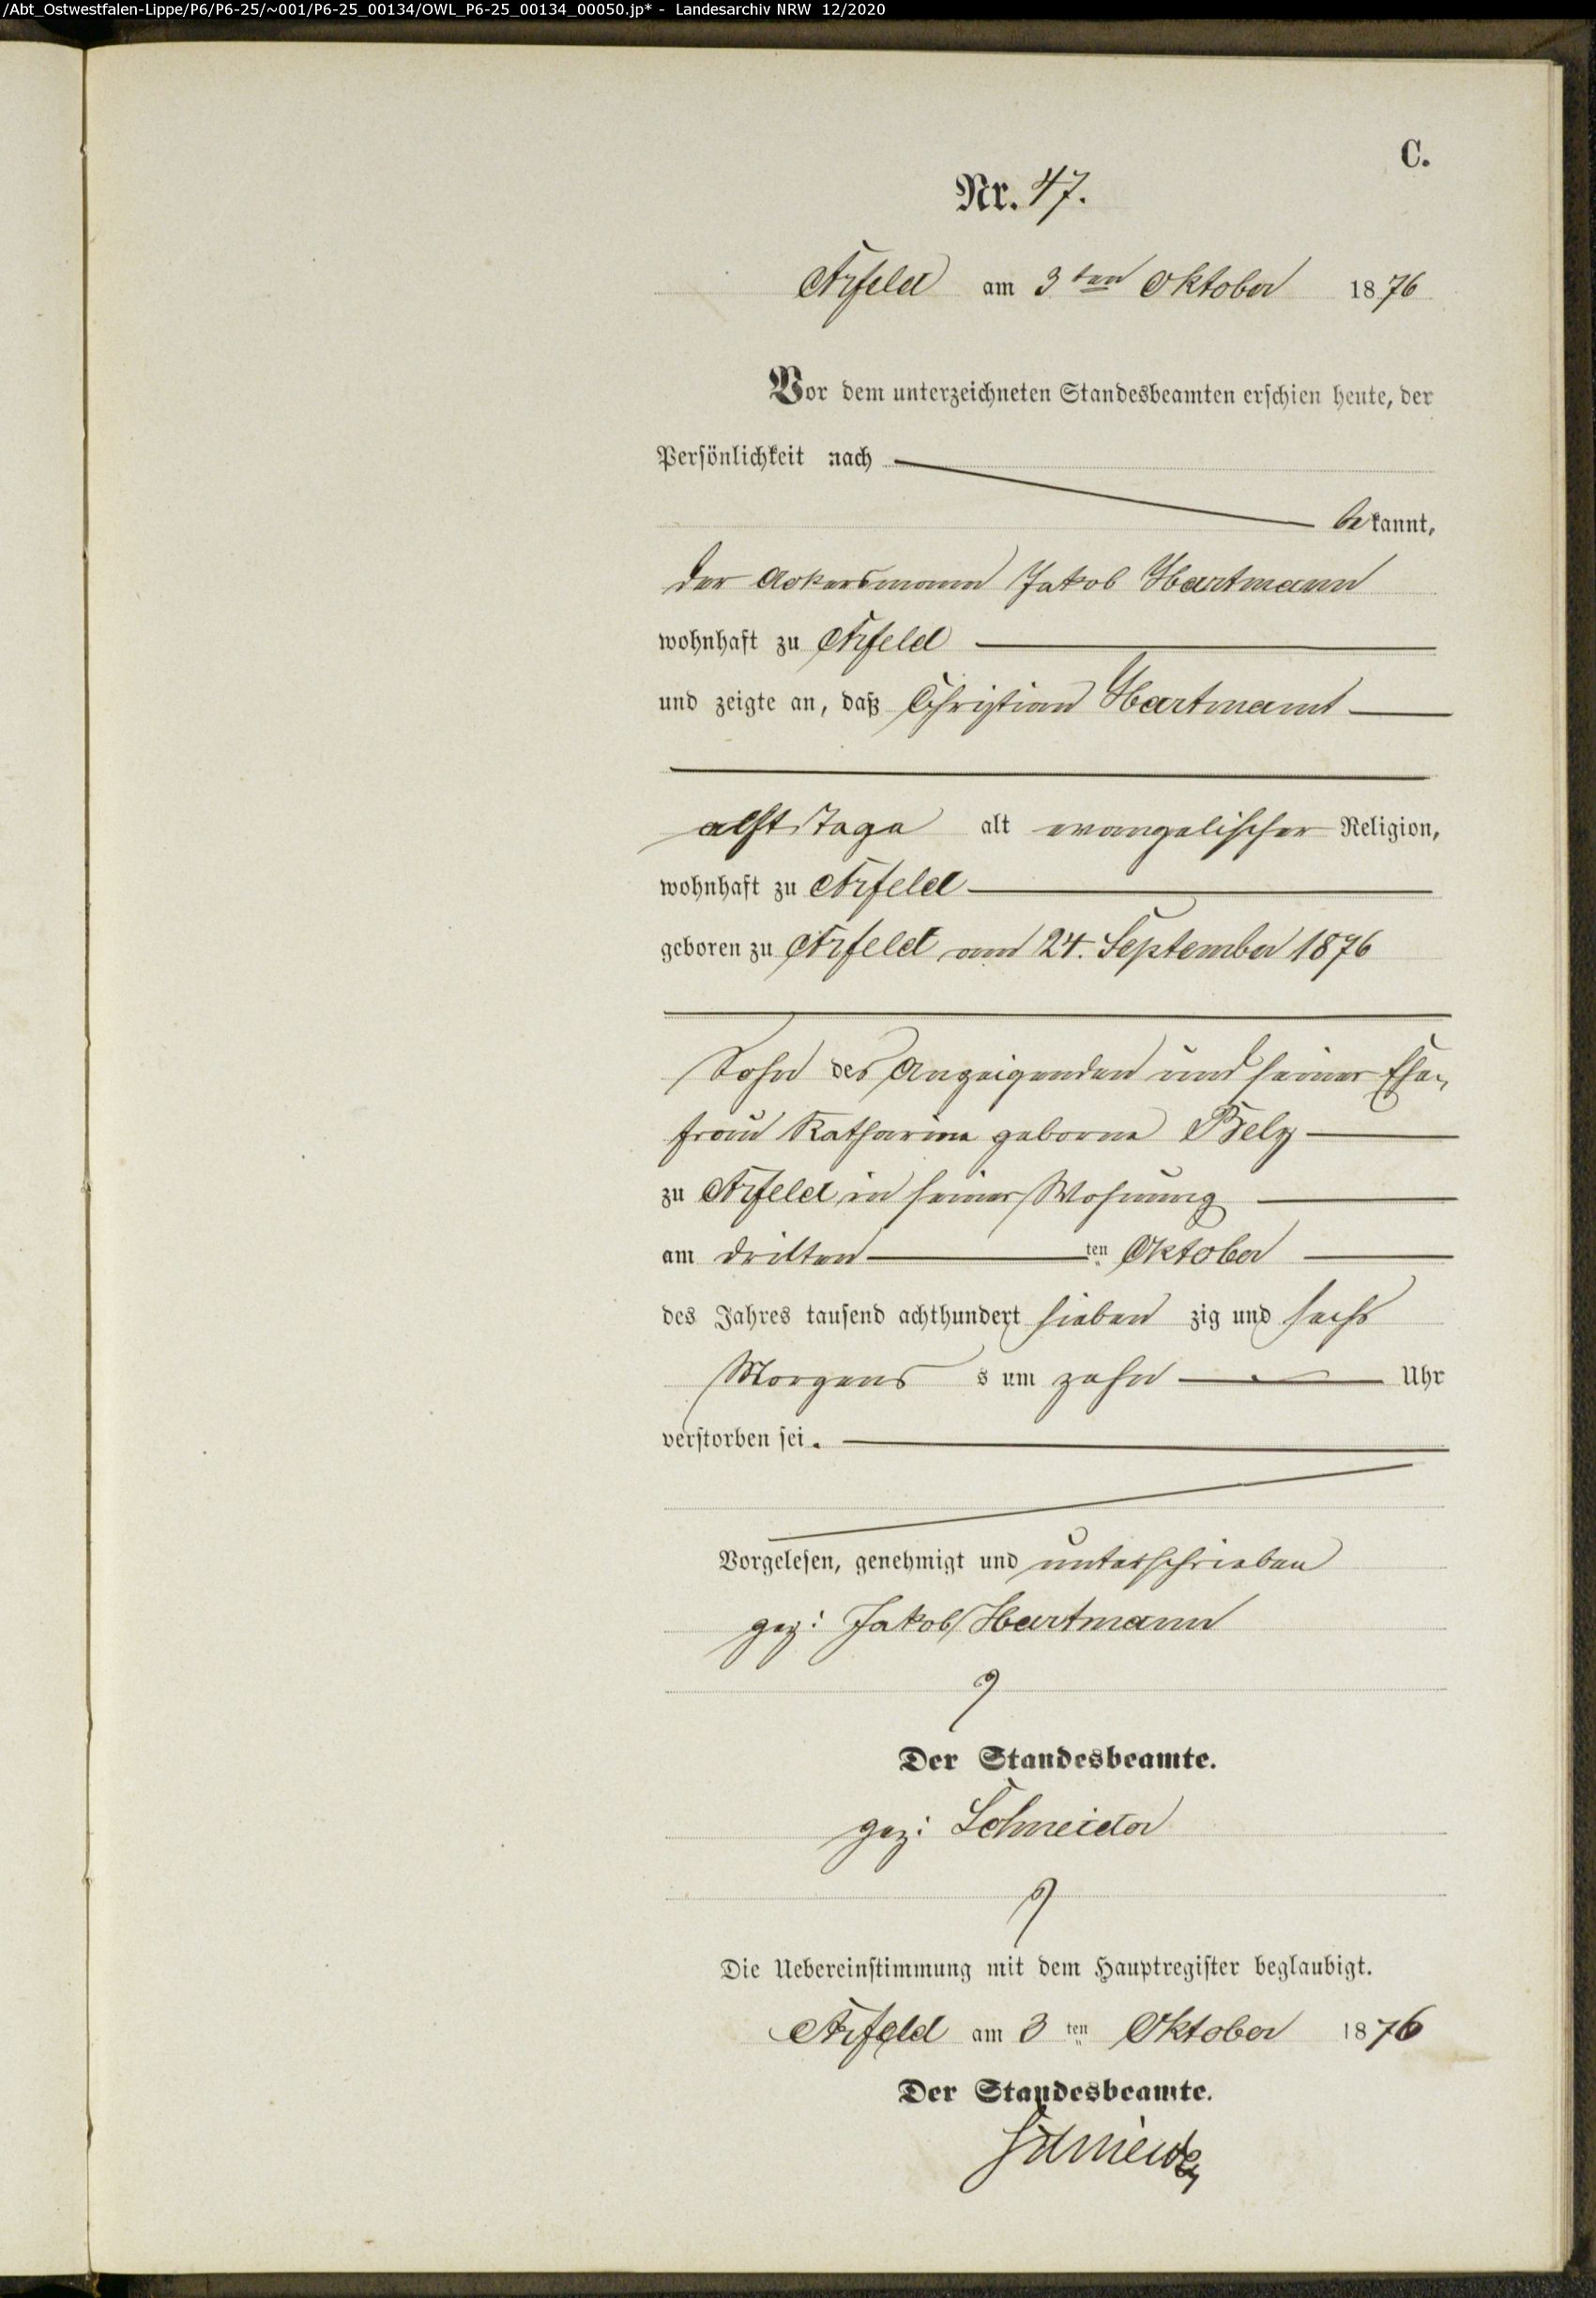 /Abt_Ostwestfalen-Lippe/P6/P6-25/~001/P6-25_00134/OWL_P6-25_00134_00050.jp* - Landesarchiv NRW 12/2020
C.
Nr. 47.
Arfeld am 3ten Oktober 1876
Vor dem unterzeichneten Standesbeamten erschien heute, der
Persönlichkeit nach
bekannt,
der Ackersmann Jakob Hartmann
wohnhaft zu Arfeld
und zeigte an, daß Christian Hartmann
Tage alt evangelischer Religion,
wohnhaft zu Arfeld
geboren zu Arfeld am 24. September 1876
Sohn des Anzeigenden und seiner Ehe-
frau Katharine geborne Belz
zu Arfeld in seiner Wohnung
am dritten ten Oktober
des Jahres tausend achthundert sieben zig und sechs
Morgens s um zehn Uhr
verstorben sei.
Vorgelesen, genehmigt und unterschrieben
gez: Jakob Hartmann
Der Standesbeamte.
gez: Schneider
Die Uebereinstimmung mit dem Hauptregister beglaubigt.
Arfeld am 3 ten Oktober 1876
Der Standesbeamte.
Schneider